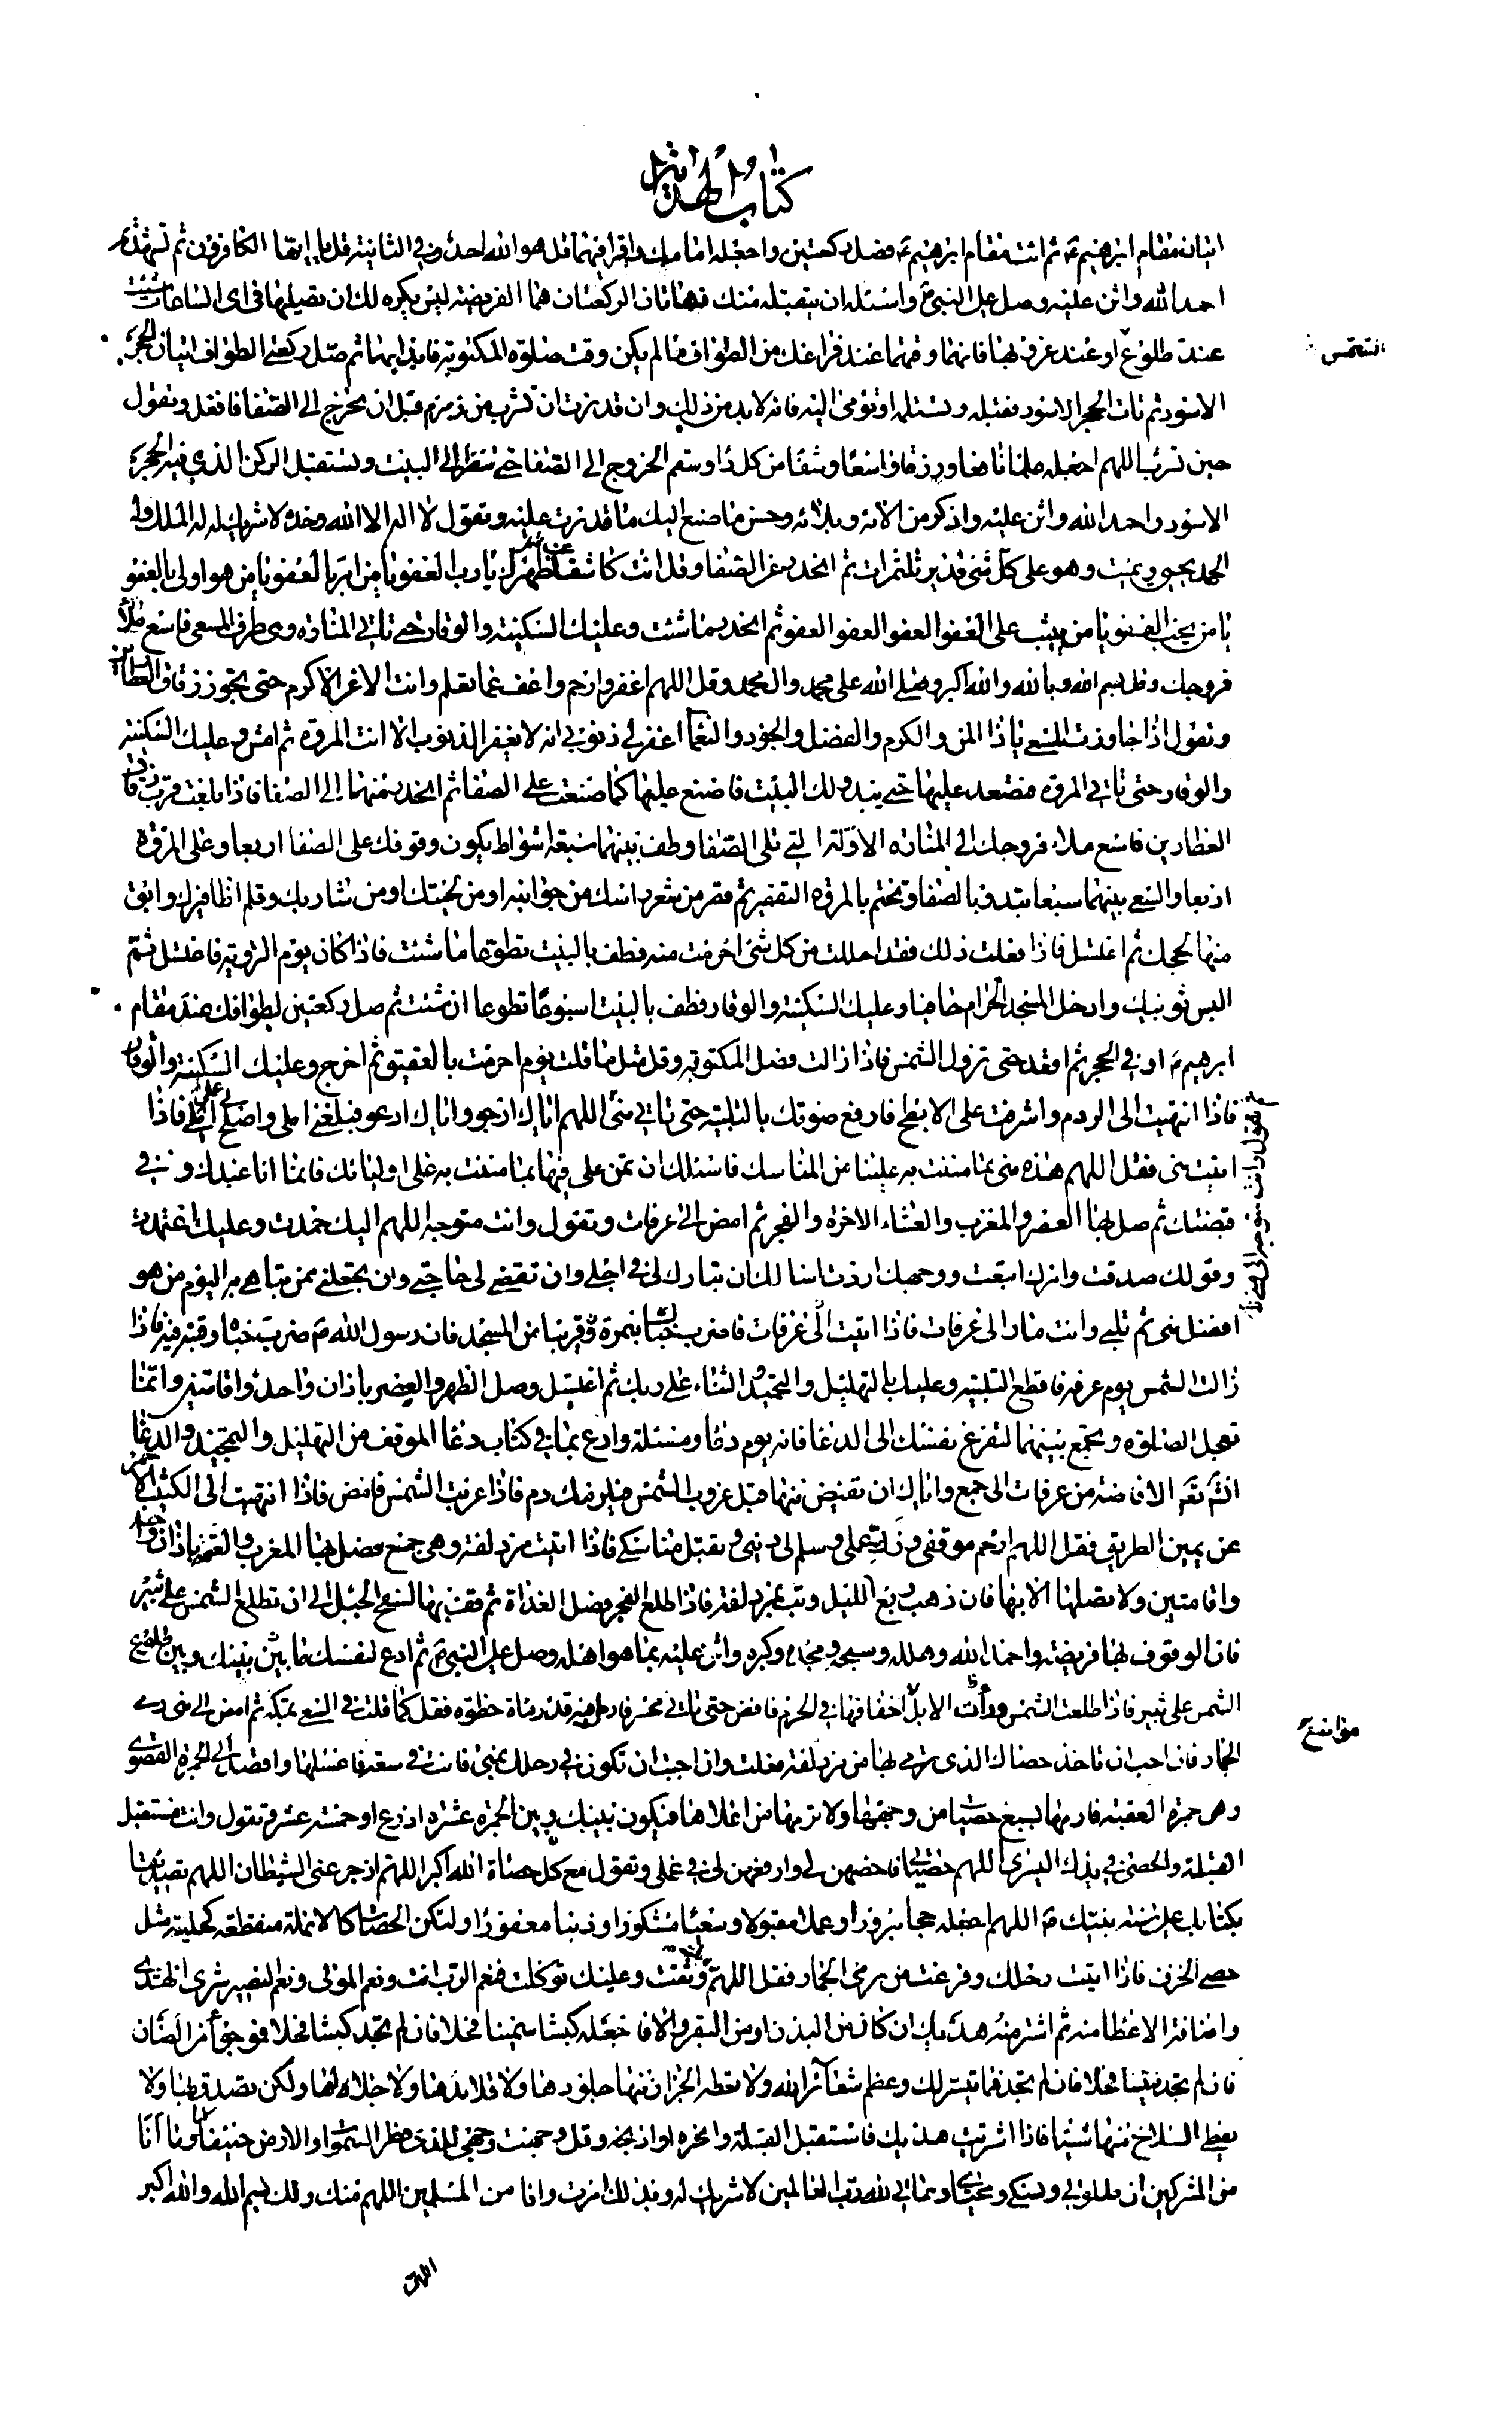 كتاب الهداية
اتيان مقام ابرهيم ع ثم ائت مقام ابرهيم ع فصل ركعتين واجعله امامك واقرا فيهما قل هو الله احد وفي الثانية قل يا ايها الكافرون ثم تشهد ثم
احمد الله واثن عليه وصل على النبي ص واسئله ان يتقبله منك فهاتان الركعتان هما الفريضة ليس يكره لك ان تصليها في اى الساعات شئت
الشمس
عند طلوع او عند غروبها فانهما وقتهما عند فراغك من الطواف ما لم يكن وقت صلوة المكتوبة فابدا بها ثم صل ركعتي الطواف اتيان الحجر
الاسود ثم تات الحجر الاسود فتقبله وتستلمه او تومى اليه فانه لا بد من ذلك وان قدرت ان تشرب من زمزم قبل ان تخرج الى الصفا فافعل وتقول
حين تشرب اللهم اجعله علما نافعا ورزقا واسعا وشفا من كل دا وسقم الخروج الى الصفا حتى تنظر الى البيت وتستقبل الركن الذي فيه الحجر
الاسود واحمد الله واثن عليه واذكر من الائه وبلائه وحسن ما صنع اليك ما قدرت عليه وتقول لا اله الا الله وحده لا شريك له له الملك وله
الحمد يحيي ويميت وهو على كل شئ قدير ثلث مرات ثم انحدر عن الصفا وقل وانت كاشف عن ظهرك يا رب العفو يا من امر بالعفو يا من هو اولى بالعفو
يا من يحب العفو يا من يثيب على العفو العفو العفو العفو ثم انحدر ماشيا وعليك السكينة والوقار حتى تاتى المنارة وهى طرف المسعى فاسع ملا
فروجك وقل بسم الله وبالله والله اكبر وصلى الله على محمد وال محمد وقل اللهم اغفر وارحم واعف عما تعلم وانت الاعز الاكرم حتى تجوز زقاق العطارين
وتقول اذا جاوزت المسعى يا ذا المن والكرم والفضل والجود والنعما اغفر لي ذنوبي انه لا يغفر الذنوب الا انت المروة ثم امش وعليك السكينة
والوقار حتى تاتي المروة فتصعد عليها حتى يبدو لك البيت فاصنع عليها كما صنعت على الصفا ثم انحدر منهما الى الصفا فاذا بلغت قرب زقاق
العطارين فاسع ملاء فروجك الى المنارة الاولة التي تلى الصفا وطف بينهما سبعة اشواط يكون وقوفك على الصفا اربعا وعلى المروة
اربعا والسعي بينهما سبعا تبدو بالصفا وتختم بالمروة التقصير ثم قصر من شعر راسك من جوانبه او من لحيتك او من شاربك وقلم اظافيرك وابق
منها لحجك ثم اغتسل فاذا فعلت ذلك فقد احللت من كل شئ احرمت منه فطف بالبيت تطوعا ما شئت فاذا كان يوم التروية فاغتسل ثم
البس ثوبيك وادخل المسجد الحرام حافيا وعليك السكينة والوقار فطف بالبيت اسبوعا تطوعا ان شئت ثم صل ركعتين لطوافك عند مقام
ابرهيم ع او في الحجر ثم اقعد حتى تزول الشمس فاذا زالت فصل المكتوبة وقل مثل ما قلت يوم احرمت بالعقيق ثم اخرج وعليك السكينة والوقار
فاذا انتهيت الى الردم واشرفت على الابطح فارفع صوتك بالتلبية حتى تاتي منى اللهم اياك ارجو واياك ادعو فبلغني املى واصلح لي عملى فاذا
اتيت منى فقل اللهم هذه منى مما مننت به علينا من المناسك فاسئلك ان تمن على فيها بما مننت به على اوليائك فانما انا عبدك وفي
قبضتك ثم صل بها العصر والمغرب والعشاء الاخرة والفجر ثم امض الى عرفات وتقول وانت متوجه اللهم اليك صمدت وعليك اعتمدت
وقولك صدقت وامرك اتبعت ووجهك اردت اسالك ان تبارك لي في اجلى وان تقضى لي حاجتي وان تجعلني ممن تباهى به اليوم من هو
افضل منى ثم تلبي وانت مار الى عرفات فاذا اتيت الى عرفات فاضرب خباك بنمرة قريبا من المسجد فان رسول الله ص ضرب خباه وقبته فيه فاذا
زالت الشمس يوم عرفة فاقطع التلبية وعليك بالتهليل والتحميد والثناء على ربك ثم اغتسل وصل الظهر والعصر باذان واحد واقامتين وانما
تعجل الصلوة وتجمع بينهما لتفرغ نفسك الى الدعا فانه يوم دعا ومسئلة وادع بما في كتاب دعا الموقف من التهليل والتمجيد والدعا
الافاضة من عرفات الى جمع واياك ان تفيض منها قبل غروب الشمس فيلزمك دم فاذا غربت الشمس فامض فاذا انتهيت الى الكثيب الاحمر
عن يمين الطريق فقل اللهم ارحم موقفي وزك عملى وسلم لى دينى وتقبل مناسكى فاذا اتيت مزدلفة وهى جمع فصل بها المغرب والعتمة باذان واحد
واقامتين ولا تصلها الا بها فان ذهب ربع الليل وبت بمزدلفة فاذا طلع الفجر فصل الغداة ثم قف بها بسفح الجبل الى ان تطلع الشمس على ثبير
فان الوقوف بها فريضة واحمد الله وهلله وسبحه ومجده وكبره واثن عليه بما هو اهله وصل على النبي ص ثم ادع لنفسك ما بينك وبين طلوع
الشمس على ثبير فاذا طلعت الشمس ورات الابل اخفافها في الحرم فامض حتى تاتي وادى محسر فارمل فيه قدر مائة خطوة فقل كما قلت في السعى بمكة ثم امض الى منى رمى
مواضع
الجمار فان احب ان تاخذ حصاك الذى ترمى بها من مزدلفة فعلت وان احببت ان تكون في رحلك بمنى فانت في سعة فاغسلها واقصد الى الجمرة القصوى
وهى جمرة العقبة فارمها بسبع حصيات من وجهها ولا ترمها من اعلاها فيكون بينك وبين الجمرة عشرة اذرع او خمسة عشر وتقول وانت مستقبل
القبلة والحصى في يدك اليسرى اللهم هذه حصياتي فاحصهن لي وارفعهن لي في عملي وتقول مع كل حصاة الله اكبر اللهم ازجر عنى الشيطان اللهم تصديقا
بكتابك على سنة نبيك ص اللهم اجعله حجا مبرورا وعملا مقبولا وسعيا مشكورا وذنبا مغفورا ولتكن الحصاة كالانملة منقطة كحلية مثل
حصى الخزف فاذا اتيت رحلك وفرغت من رمى الجمار فقل اللهم بك وثقت وعليك توكلت فنعم الرب انت ونعم المولى ونعم النصير شرى الهدى
ثم اشتر منه هديك ان كان من البدن او من البقر والا فاجعله كبشا سمينا فحلا فان لم تجد كبشا فحلا فموجوء من الضان
فان لم تجد فتيسا فحلا فان لم تجد فما تيسر لك وعظم شعائر الله ولا تعط الجزار منها جلودها ولا قلائدها ولا جلالها ولكن تصدق بها ولا
تعطى السلاخ منها شيئا فاذا اشتريت هديك فاستقبل القبلة وانحره او اذبحه وقل وجهت وجهى للذى فطر السموات والارض حنيفا وما انا
من المشركين ان صلاتي ونسكي ومحياى ومماتي لله رب العالمين لا شريك له وبذلك امرت وانا من المسلمين اللهم منك ولك بسم الله والله اكبر
اللهم